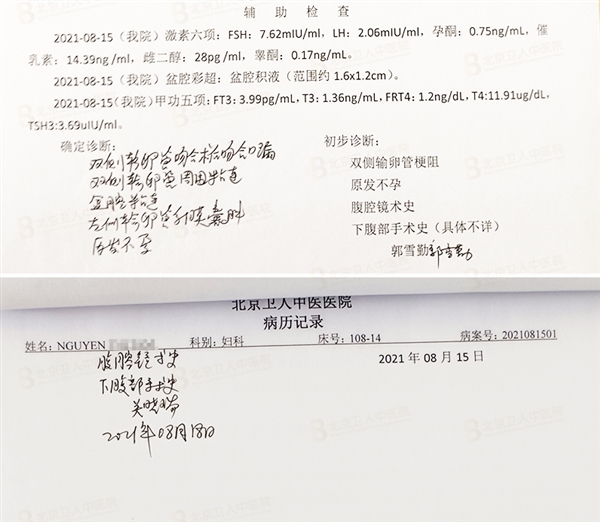 辅助检查
2021-08-15（我院）激素六项：FSH：7.62mIU/ml，LH：2.06mIU/ml，孕酮：0.75ng/mL，催
乳素：14.39ng/ml，雌二醇：28pg/ml，睾酮：0.17ng/mL。
2021-08-15（我院）盆腔彩超：盆腔积液（范围约 1.6x1.2cm）。
2021-08-15（我院）甲功五项：FT3：3.99pg/mL，T3：1.36ng/mL，FRT4：1.2ng/dL，T4:11.91ug/dL，
TSH3:3.69uIU/mL。
确定诊断：
双侧输卵管吻合术后吻合口瘘
双侧输卵管周围粘连
盆腔粘连
左侧输卵管系膜囊肿
原发不孕
初步诊断：
双侧输卵管梗阻
原发不孕
腹腔镜术史
下腹部手术史（具体不详）
郭雪勤 郭雪勤
北京卫人中医医院
病历记录
姓名：NGUYEN 科别：妇科 床号：108-14 病案号：2021081501
2021 年 08 月 15 日
腹腔镜术史
下腹部手术史
2021年08月18日